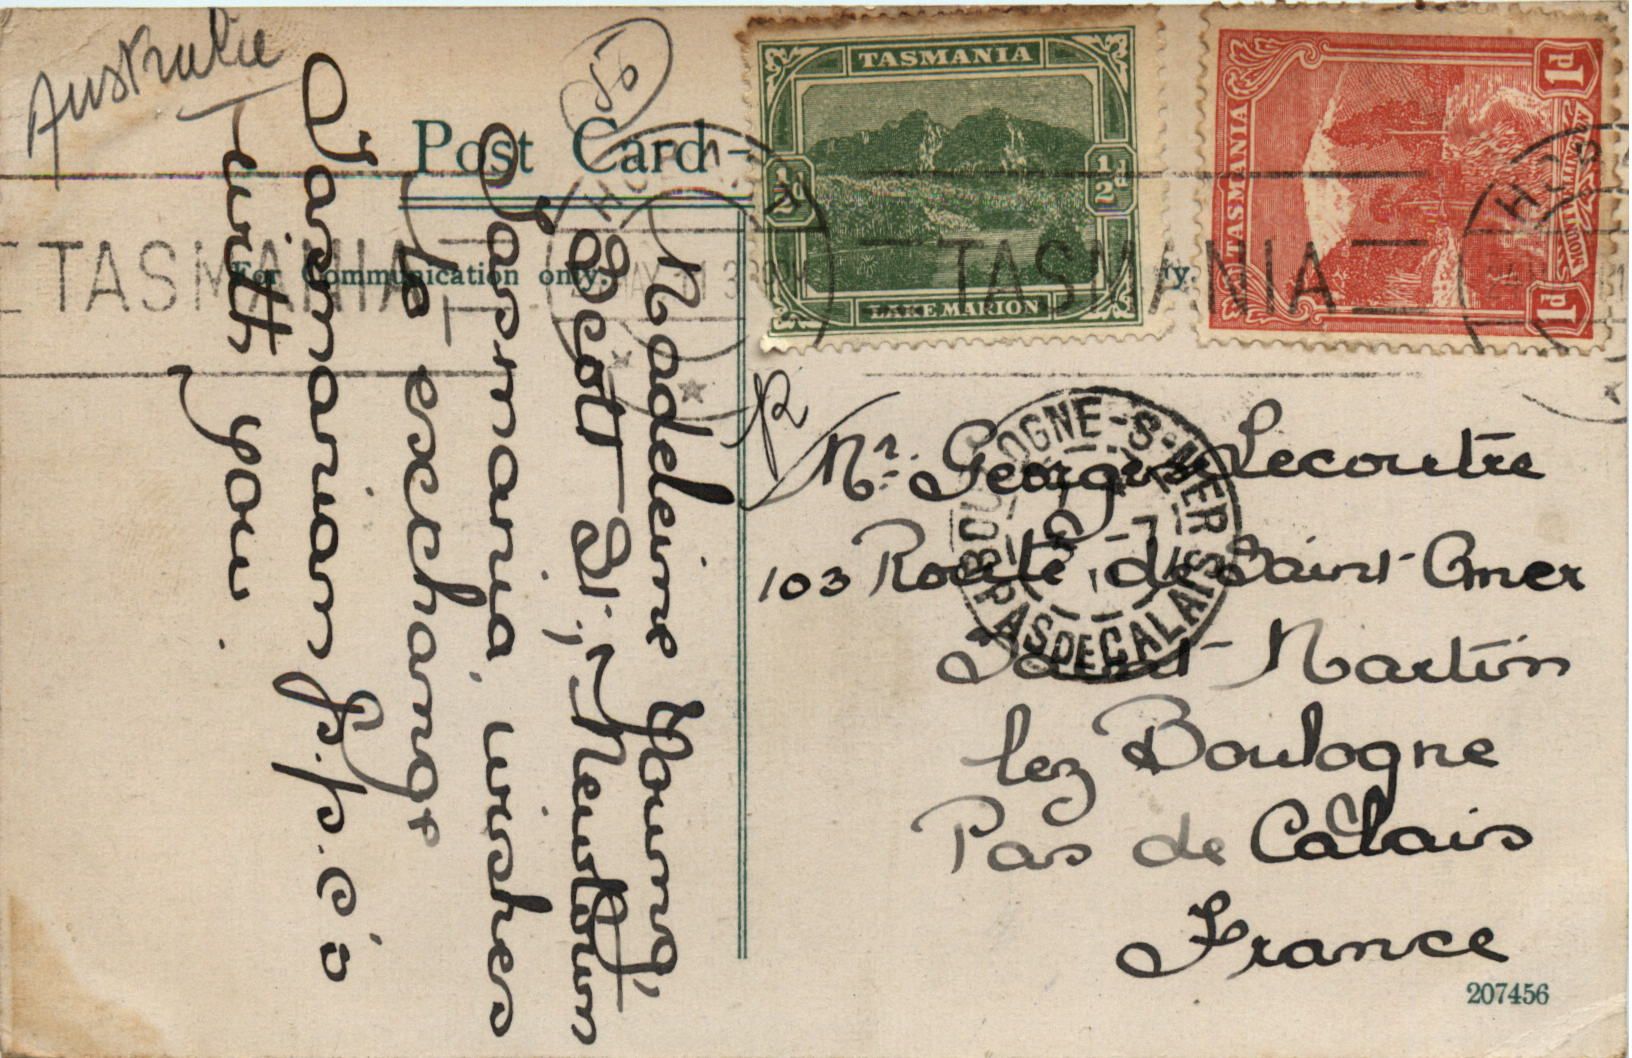 Australie
50
Post Card
For Communication only.
TASMANIA
½d ½d
LAKE MARION
TASMANIA
1d 1d
TASMANIA
TASMANIA
Madeleine Young,
Scott St, Newtown
Tasmania, wishes
to exchange
Tasmanian p.p.c's
with you.
BOULOGNE-S-MER
PAS DE CALAIS
Mr. Georges Lecoutre
103 Route de Saint-Omer
Saint-Martin
lez Boulogne
Pas de Calais
France
207456